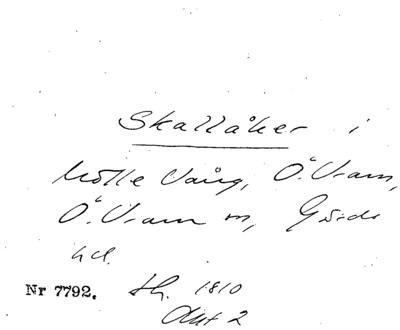 Skallåker i
Mölle Vång, Ö. Vram,
Ö. Vram sn, Gärds
hd.
Nr 7792. sk. 1810
Akt 2